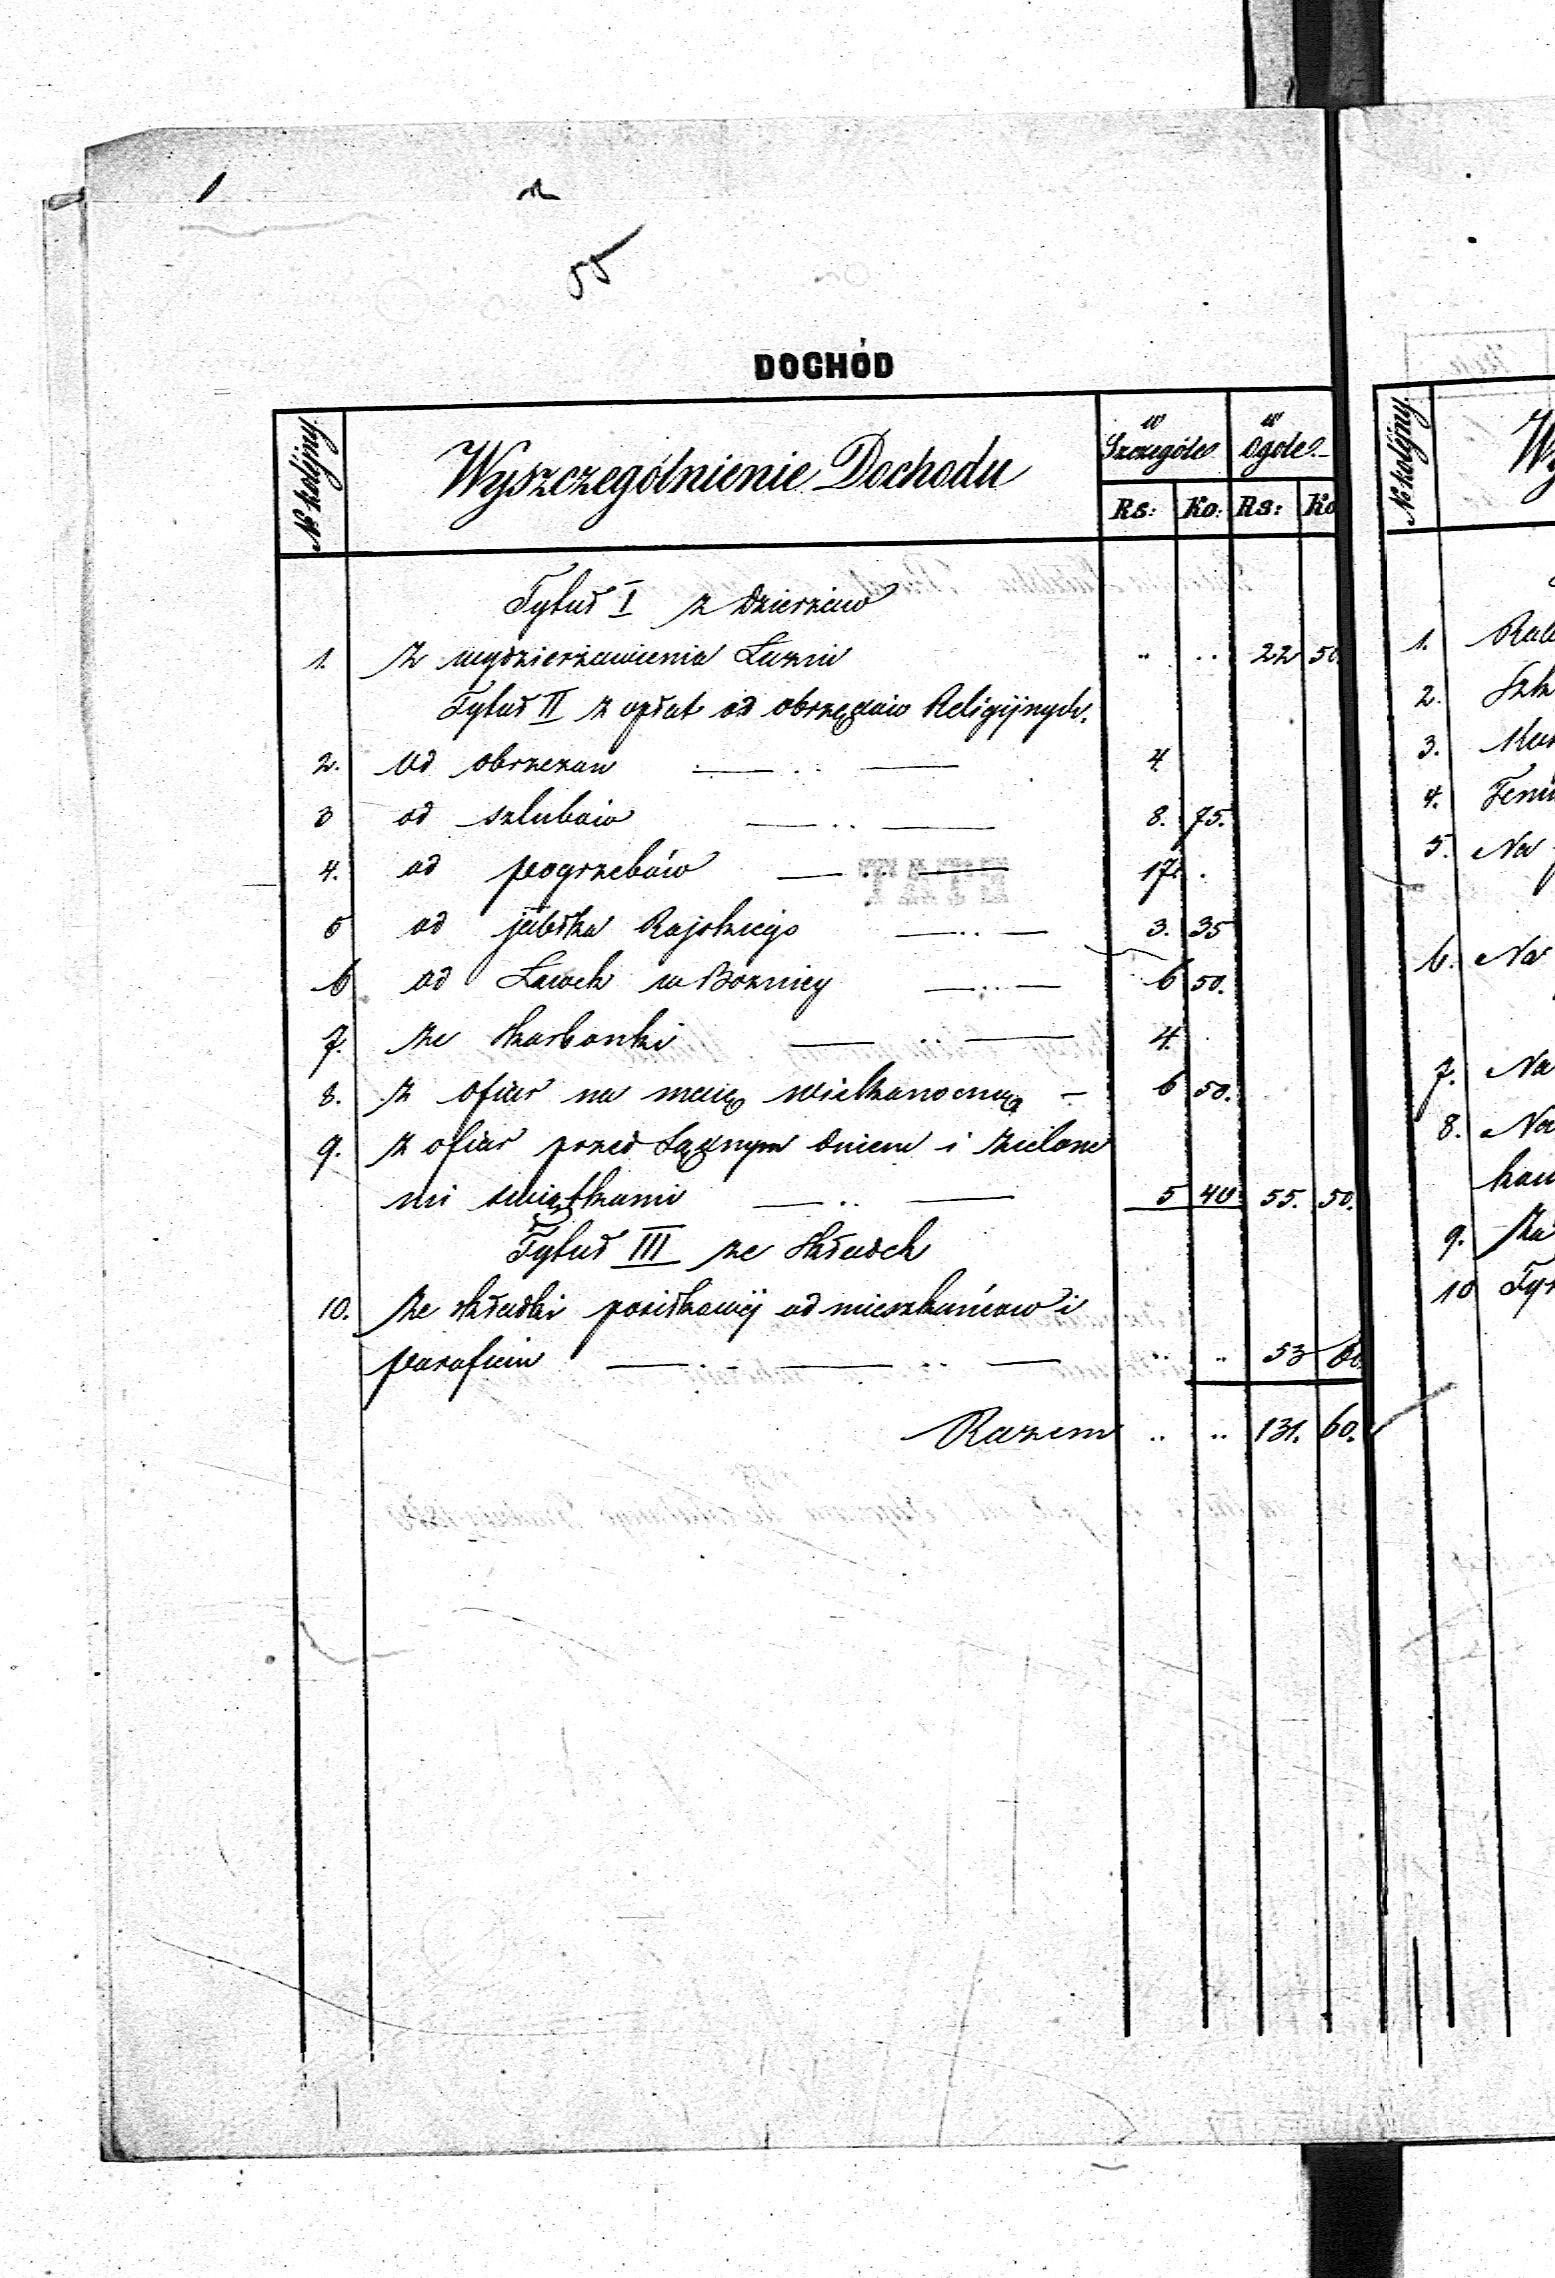 55
DOCHÓD
№ kolejny. Wyszczególnienie Dochodu w Szczególe w Ogóle
Rs: Ko: Rs: Ko
Tytuł I z dzierżaw
1. Z wydzierżawienia Łazni .. .. 22 50.
Tytuł II z opłat od obrzędów Religijnych.
2. Od obrzezan 4.
3 od szlubów 8. 75.
4. od pogrzebów 17. .
5 od jabłka Rajskiego 3. 35
6 od Ławek w Boznicy 6 50.
7. Ze skarbonki 4. .
8. Z ofiar na mąię wielkanocną 6 50.
9. Z ofiar przed Sądnym dniem i Zielone
mi swiątkami 5 40 55. 50.
Tytuł III ze składek
10. Ze składki posiłkowéj od mieszkańców i
parafian .. .. 53 60.
Razem .. .. 131. 60.
№ kolejny.
1.
2.
3.
4.
5. Na
6. Na
7. Na
8. Na
9. Za
10
ETAT